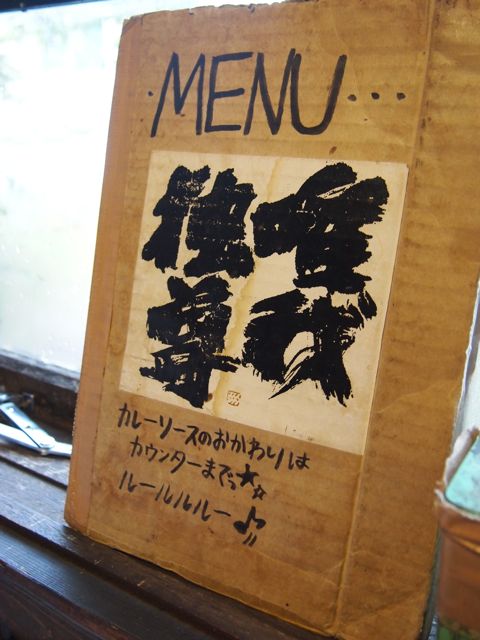 ・MENU・・・
唯我
独尊
カレーソースのおかわりは
カウンターまでっ★☆
ルールルルー♪